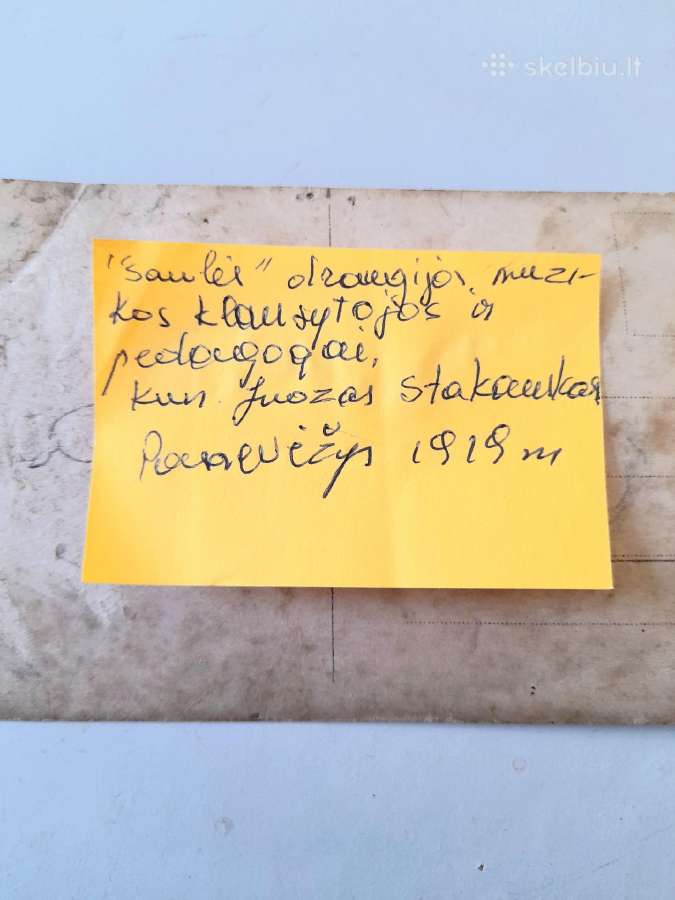 skelbiu.lt
"Saulės" draugijos, muzi-
kos klausytojos ir
pedangogai,
kun. Juozas Stakauskas
Panevėžys 1919 m